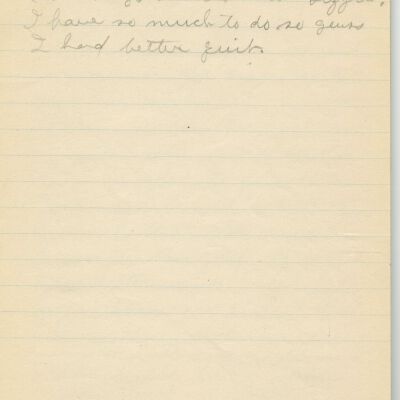 I have so much to do so guess
I had better quit.